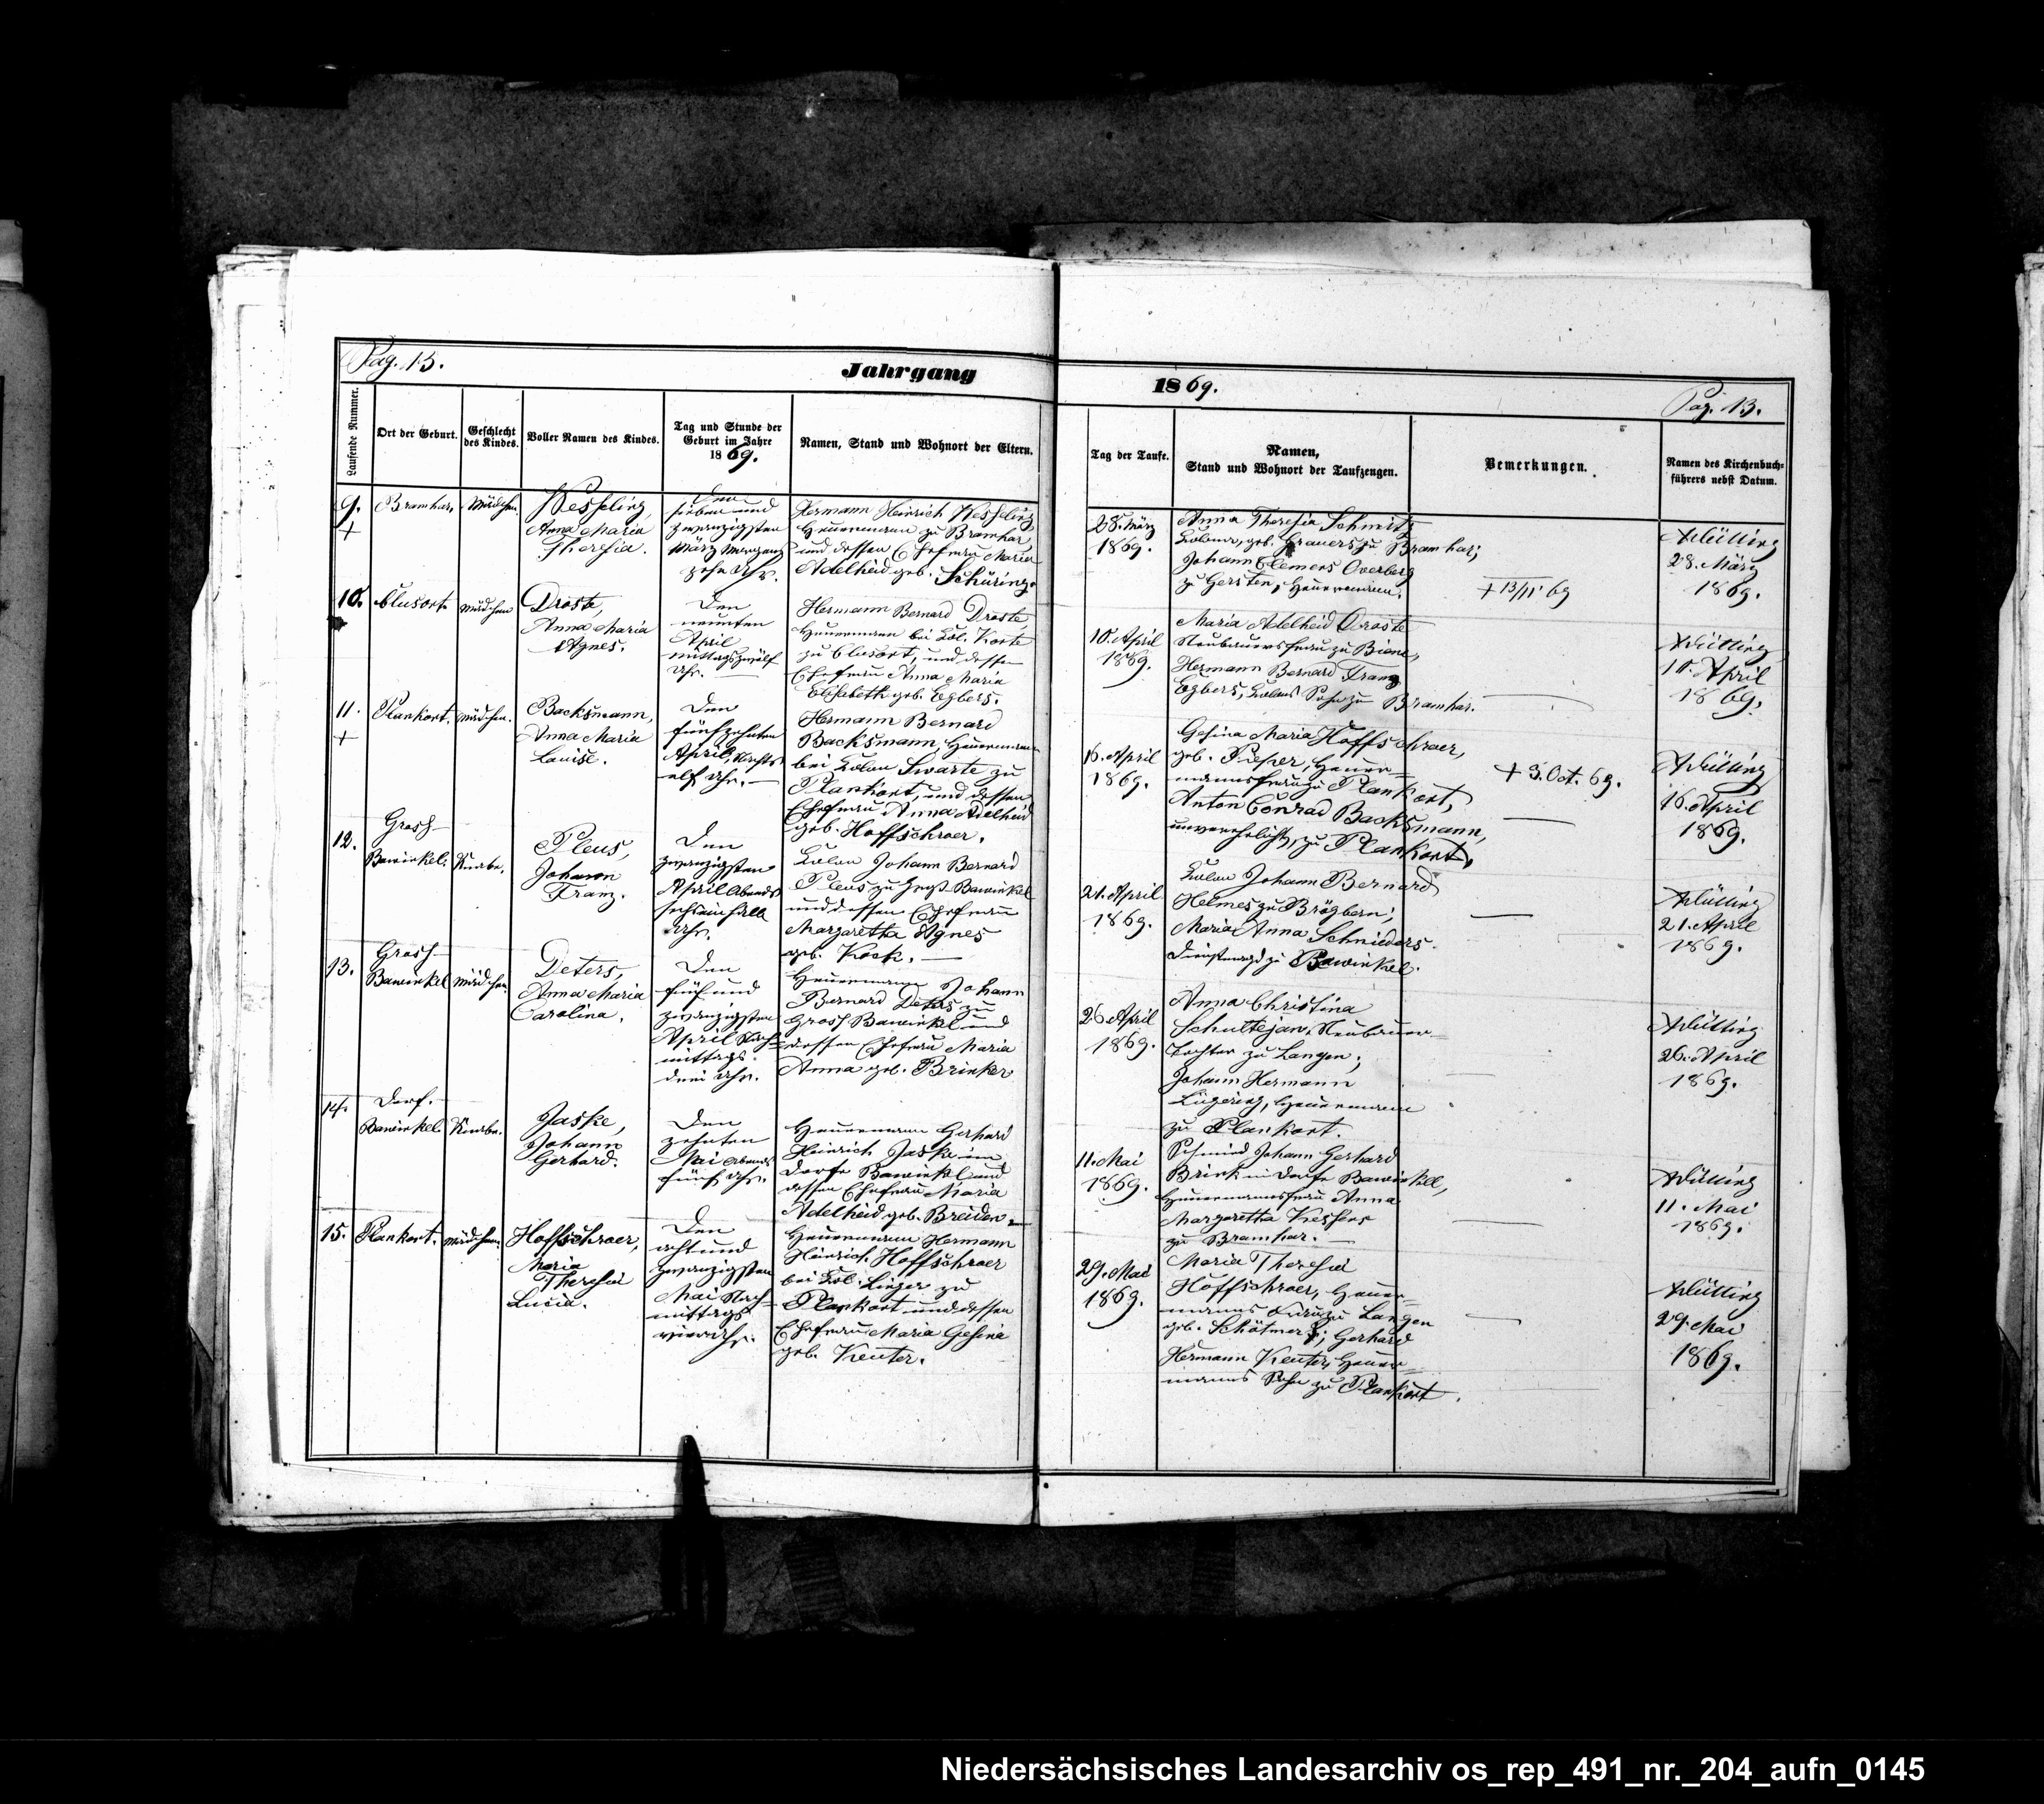 Pag. 13.
Jahrgang
1869.
Pag. 13.
Laufende Nummer.
Ort der Geburt.
Geschlecht
des Kindes.
Voller Namen des Kindes.
Tag und Stunde der
Geburt im Jahre
1869.
Namen, Stand und Wohnort der Eltern.
Tag der Taufe.
Namen,
Stand und Wohnort der Taufzeugen.
Bemerkungen.
Namen des Kirchenbuch-
führers nebst Datum.
9.
+
Bramhar,
Mädchen.
Wesseling,
Anna Maria
Theresia.
Den
sieben und
zwanzigsten
März Morgens
zehn Uhr.
Hermann Heinrich Wesseling
Heuermann zu Bramhar
und dessen Ehefrau Maria
Adelheid geb. Schüring.
28. März
1869.
Anna Theresia Schmitz
geb. Grauers zu Bramhar;
Johann Clemens Overberg
zu Gersten, Heuermann.
+ 13/11 69
28. März
1869.
10.
Clusort.
Mädchen
Droste,
Anna Maria
Agnes.
Den
neunten
April
mittags zwölf
Uhr.
Hermann Bernard Droste,
Heuermann bei Col. Korte
zu Clusort, und dessen
Ehefrau Anna Maria
Elisabeth geb. Egbers.
10. April
1869.
Maria Adelheid Droste
Neubauersfrau zu Biene,
Hermann Bernard Franz
Egbers, Colons Sohn zu Bramhar.
10. April
1869.
11.
+
Plankort.
Mädchen.
Backsmann,
Anna Maria
Louise.
Den
fünfzehnten
April, Nachts
elf Uhr.
Hermann Bernard
Backsmann, Heuermann
bei Colon Swarte zu
Plankort, und dessen
Ehefrau Anna Adelheid
geb. Hoffschroer.
16. April
1869.
Gesina Maria Hoffschroer,
geb. Pieper, Heuer=
mannsfrau zu Plankort,
Anton Conrad Backsmann,
unverehelicht, zu Plankort.
+ 3. Oct. 69.
16. April
1869.
12.
Gross-
Bawinkel.
Knabe.
Pleus,
Johann
Franz.
Den
zwanzigsten
April Abends
sechseinhalb
Uhr.
Colon Johann Bernard
Pleus zu Groß Bawinkel
und dessen Ehefrau
Margaretha Agnes
geb. Kock.
21. April
1869.
Colon Johann Bernard
Helmes zu Brögbern;
Maria Anna Schnieders.
Dienstmagd zu Bawinkel.
21. April
1869.
13.
Gross-
Bawinkel
Mädchen.
Deters,
Anna Maria
Carolina.
Den
fünf und
zwanzigsten
April Nach=
mittags
drei Uhr.
Heuermann Johann
Bernard Deters zu
Gross Bawinkel und
dessen Ehefrau Maria
Anna geb. Brinker
26. April
1869.
Anna Christina
Schultejan, Neubauer
Tochter zu Langen;
Johann Hermann
Lügering, Heuermann
zu Plankort.
26. April
1869.
14.
Dorf.
Bawinkel
Knabe.
Jaske,
Johann
Gerhard.
Den
zehnten
Mai Abends
fünf Uhr.
Heuermann Gerhard
Heinrich Jaske im
Dorfe Bawinkel und
dessen Ehefrau Maria
Adelheid geb. Breiden.
11. Mai
1869.
Schmied Johann Gerhard
Brink im Dorfe Bawinkel,
Heuermannsfrau Anna
Margaretha
zu Bramhar.
11. Mai
1869.
15.
Plankort.
Mädchen.
Hoffschroer,
Maria
Theresia
Lucia.
Den
acht und
zwanzigsten
Mai Nach=
mittags
vier Uhr.
Heuermann Hermann
Heinrich Hoffschroer
bei Col. zu
Plankort und dessen
Ehefrau Maria Gesina
geb. Keuter.
29. Mai
1869.
Maria Theresia
Hoffschroer, Heuer=
manns Frau zu Langen
geb. Gerhard
Hermann Keuter, Heuer=
manns Sohn zu Plankort.
29. Mai
1869.
Niedersächsisches Landesarchiv os_rep_491_nr._204_aufn_0145